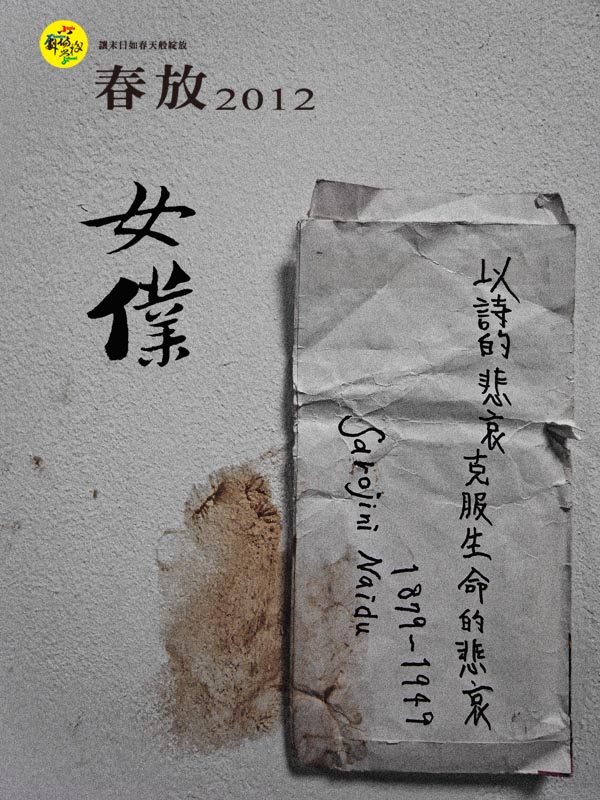 讓末日如春天般綻放
春放2012
女僕
以詩的悲哀克服生命的悲哀
Sarojini Naidu
1879~1949